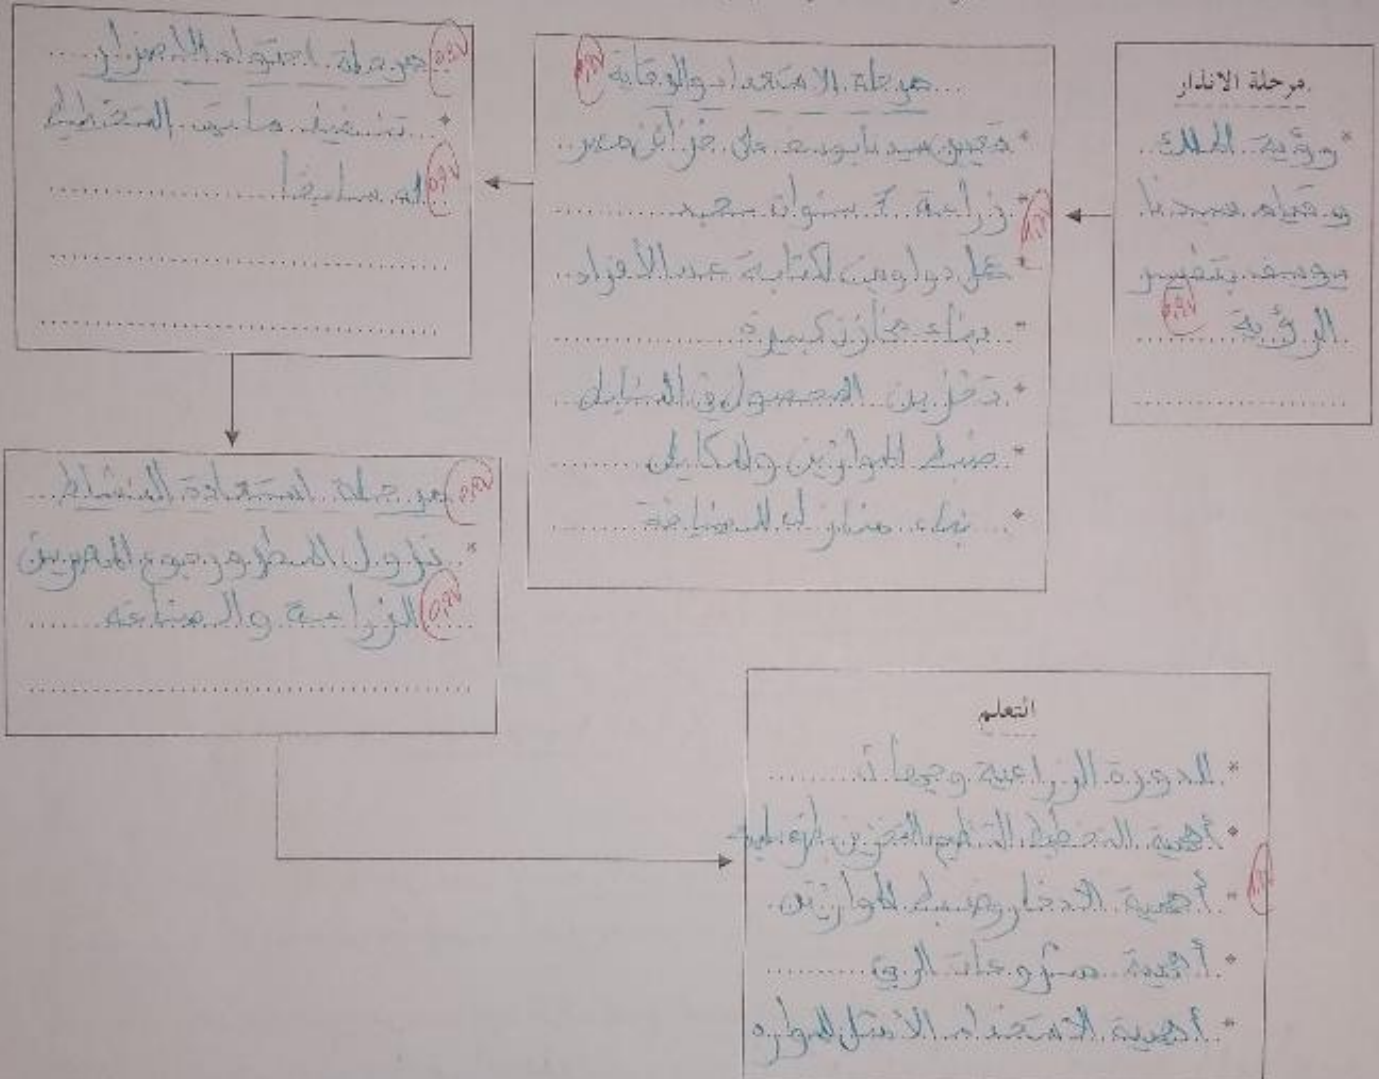 مرحلة الانذار
* رؤية الملك
وقيام سيدنا
يوسف بتفسير
الرؤية
مرحلة الاستعداد والوقاية
* تعيين سيدنا يوسف على خزائن مصر
* زراعة 7 سنوات
* عمل دواوين لكتابة عدد الأفراد
* بناء مخازن كبيرة
* تخزين المحصول في السنابل
* ضبط الموازين والمكاييل
* بناء منازل للضيافة
مرحلة احتواء الاضرار
* تنفيذ ما سبق التخطيط
له سابقا
مرحلة استعادة النشاط
* نزول المطر ورجوع المصريين
الزراعة والصناعة
التعلم
* الدورة الزراعية
* أهمية التخطيط التنظيم التخزين
* أهمية الادخار وضبط الموازين
* أهمية مشروعات الري
* أهمية الاستخدام الأمثل للموارد